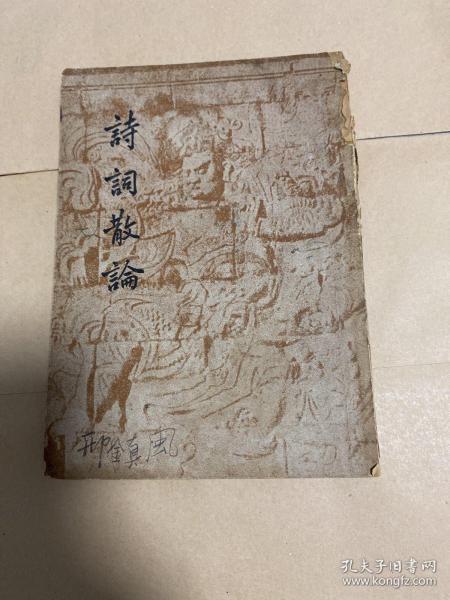 詩詞散論
孔夫子旧书网
www.kongfz.com